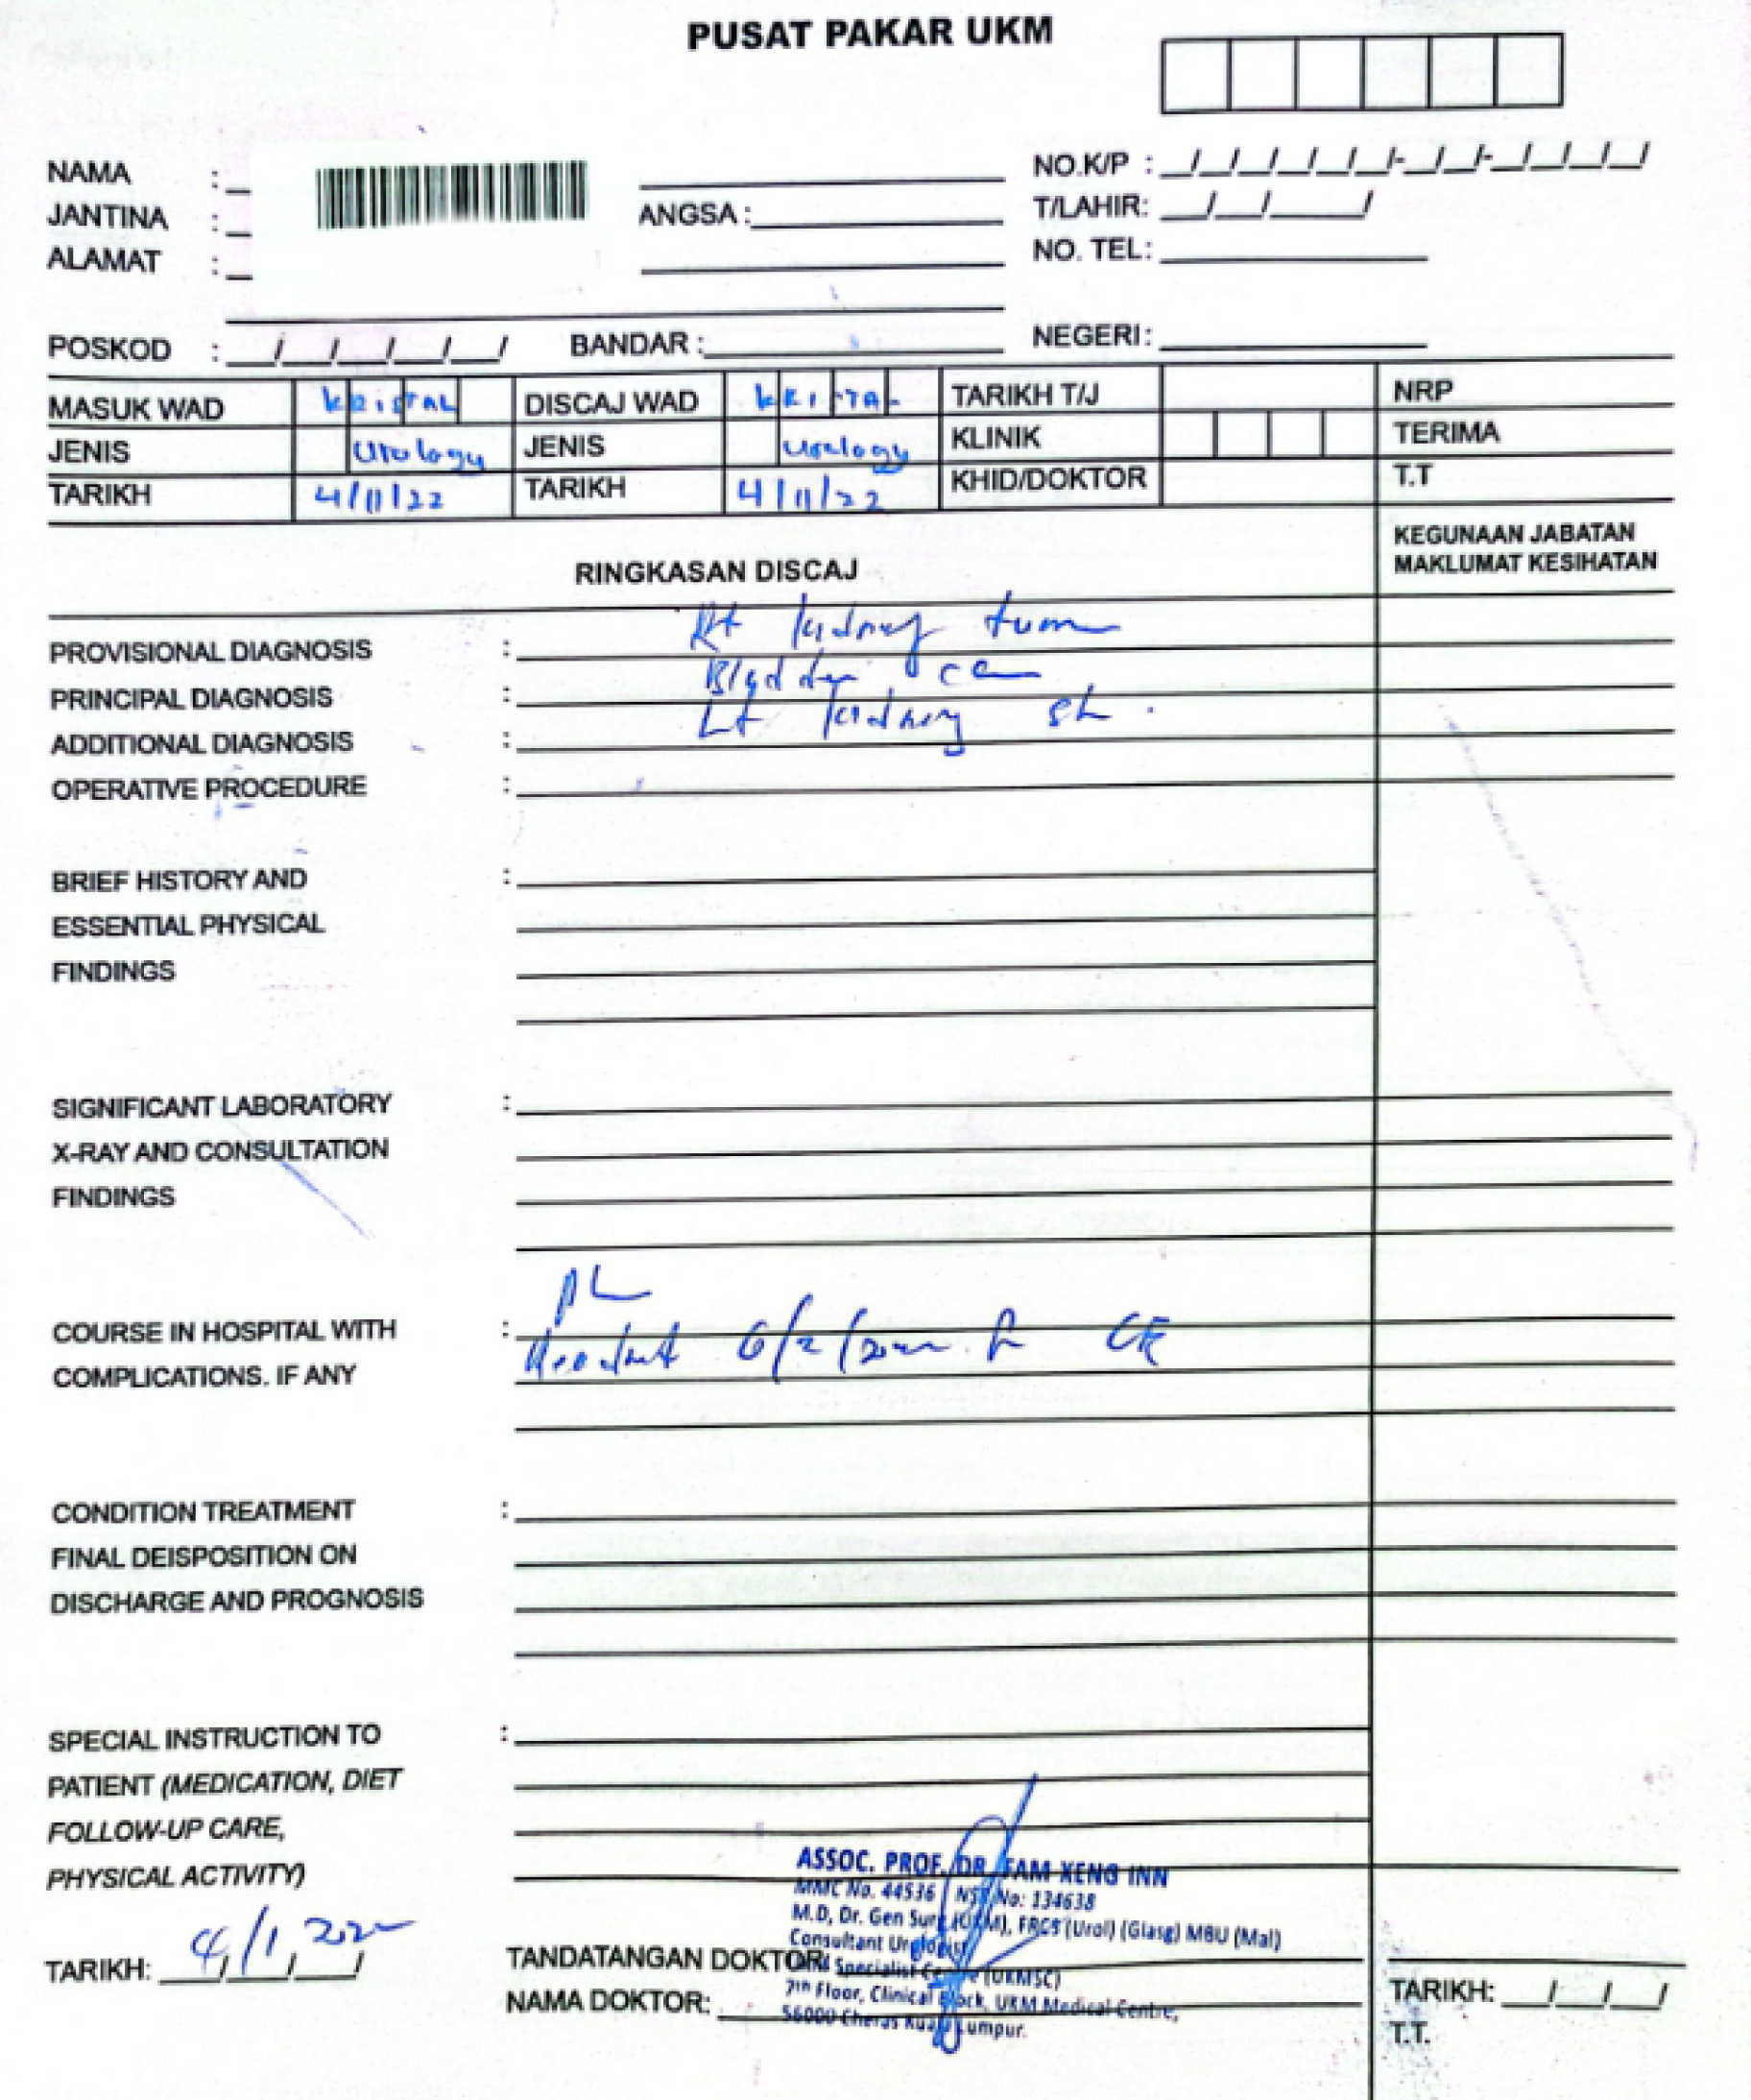 PUSAT PAKAR UKM
NAMA : NO.K/P :
JANTINA : ANGSA : T/LAHIR:
ALAMAT : NO. TEL:
POSKOD : BANDAR : NEGERI:
MASUK WAD KRISTAL DISCAJ WAD TARIKH T/J NRP
JENIS Urology JENIS Urology KLINIK TERIMA
TARIKH 4/11/22 TARIKH 4/11/22 KHID/DOKTOR T.T
KEGUNAAN JABATAN
MAKLUMAT KESIHATAN
RINGKASAN DISCAJ
PROVISIONAL DIAGNOSIS : Rt kidney
PRINCIPAL DIAGNOSIS : Bladder ca
ADDITIONAL DIAGNOSIS : Lt kidney
OPERATIVE PROCEDURE :
BRIEF HISTORY AND :
ESSENTIAL PHYSICAL
FINDINGS
SIGNIFICANT LABORATORY :
X-RAY AND CONSULTATION
FINDINGS
COURSE IN HOSPITAL WITH :
COMPLICATIONS. IF ANY
CONDITION TREATMENT :
FINAL DEISPOSITION ON
DISCHARGE AND PROGNOSIS
SPECIAL INSTRUCTION TO :
PATIENT (MEDICATION, DIET
FOLLOW-UP CARE,
PHYSICAL ACTIVITY)
ASSOC. PROF. DR TAM XENG INN
MMC No. 44536 NSR No: 134638
M.D, Dr. Gen Surg (UKM), FRCS (Urol) (Glasg) MBU (Mal)
Consultant Urologist
UKM Specialist Centre (UKMSC)
7th Floor, Clinical Block, UKM Medical Centre,
56000 Cheras Kuala Lumpur.
TARIKH: TANDATANGAN DOKTOR
NAMA DOKTOR: TARIKH:
T.T.